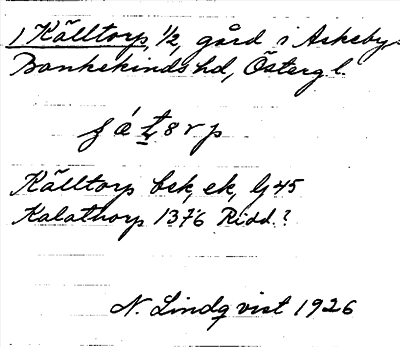 1 Källtorp, 1/2, gård i Askeby s
Bankekinds hd, Östergl.
Källtorp bsk, ek, G 45
Kalathorp 1376 Ridd.?
N. Lindqvist 1926